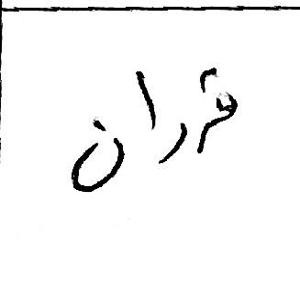 قردان